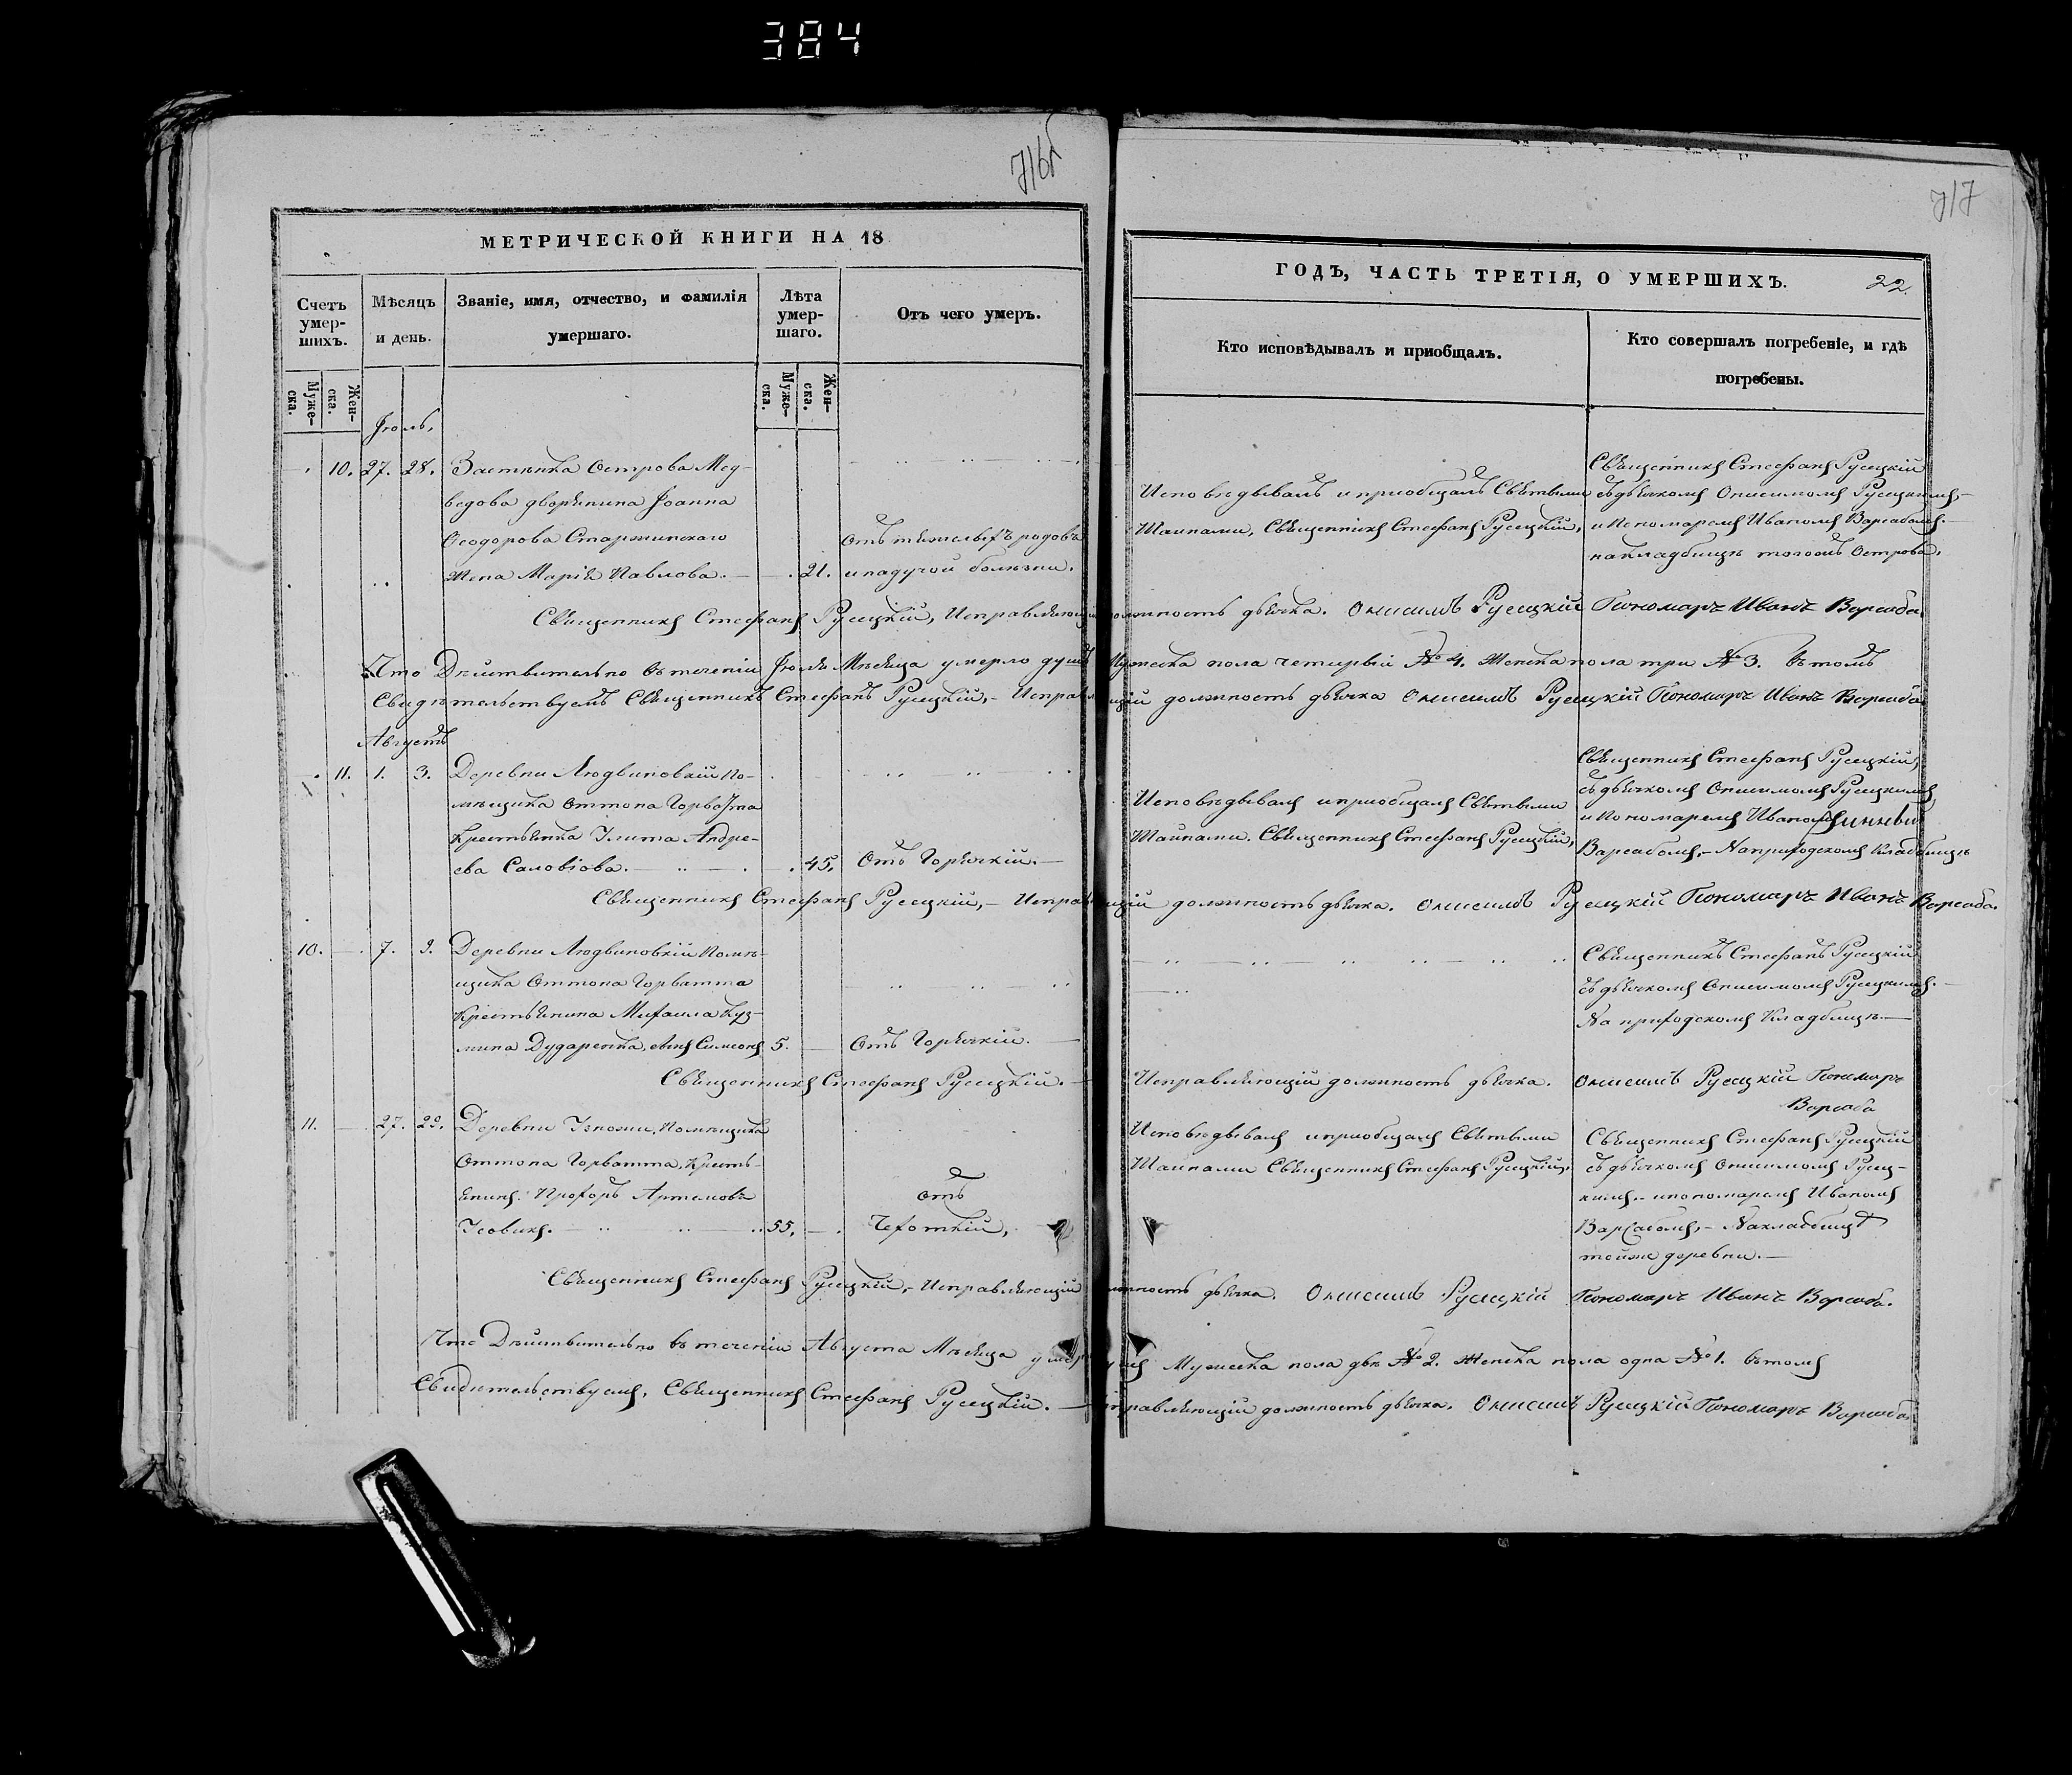 384
716
717
МЕТРИЧЕСКОЙ КНИГИ НА 18
Счетъ умер-шихъ.
Мѣсяцъ и день.
Званіе, имя, отчество, и фамилія умершаго.
Лѣта умер-шаго.
Отъ чего умеръ.
Муже-ска.
Жен-ска.
Муже-ска.
Жен-ска.
ГОДЪ, ЧАСТЬ ТРЕТІЯ, О УМЕРШИХЪ.
22.
Кто исповѣдывалъ и приобщалъ.
Кто совершалъ погребеніе, и гдѣ погребены.
Іюль,
10. 27. 28. Застѣнка Острова Мед-
ведова дворянина Іоанна
Ѳеодорова Старжинскаго
жена Марія Павлова. 21.
Отъ тяжелыхъ родовъ
и падучой болѣзни.
Исповѣдывалъ и приобщалъ Святыми
Тайнами, Священникъ Стефанъ Русецкій,
Священникъ Стефанъ Русецкій
съ дьячкомъ Онисимомъ Русецкимъ,
и Пономаремъ Иваномъ Варсабомъ.
на кладбищѣ тогожъ Острова.
Священникъ Стефанъ Русецкій, Исправляющій должность дьячка. Онисимъ Русецкій Пономарь Иванъ Варсаба.
Что Дѣйствительно въ теченіи Іюля Мѣсяца умерло душъ Мужеска пола четыри № 4. Женска пола три № 3. Въ томъ
Свидѣтельствуемъ Священникъ Стефанъ Русецкій, Исправляющій должность дьячка Онисимъ Русецкій Пономарь Иванъ Варсаба
Августъ
11. 1. 3. Деревни Людвиновкій По-
мѣщика Оттона Горватта
Крестьянка Улита Андре-
ева Саловіова. 45.
Отъ Горячкій.
Исповѣдывалъ и приобщалъ Святыми
Тайнами. Священникъ Стефанъ Русецкій,
Священникъ Стефанъ Русецкій,
съ дьячкомъ Онисимомъ Русецкимъ
и Пономаремъ Иваномъ
Варсабомъ, На приходскомъ Кладбищѣ
Священникъ Стефанъ Русецкій, Исправляющій должность дьячка. Онисимъ Русецкій Пономарь Иванъ Варсаба.
10. 7. 9. Деревни Людвиновкій Помѣ-
щика Оттона Горватта
Крестьянина Михаила Куз-
мина Дударенка, сынъ Симеонъ 5.
Отъ Горячкій.
Священникъ Стефанъ Русецкій
съ дьячкомъ Онисимомъ Русецкимъ.
На приходскомъ Кладбищѣ.
Священникъ Стефанъ Русецкій. Исправляющій должность дьячка. Онисимъ Русецкій Пономарь
Варсаба
11. 27. 29. Деревни Помѣщика
Оттона Горватта, Кресть-
янинъ Прохоръ Артемовъ
Усовикъ. 55.
Отъ
Чехоткій,
Исповѣдывалъ и приобщалъ Святыми
Тайнами Священникъ Стефанъ Русецкій,
Священникъ Стефанъ Русецкій
съ дьячкомъ Онисимомъ Русец-
кимъ и пономаремъ Иваномъ
Варсабомъ, На кладбищѣ
тойже деревни.
Священникъ Стефанъ Русецкій, Исправляющій должность дьячка. Онисимъ Русецкій Пономарь Иванъ Варсаба.
Что Дѣйствительно въ теченіи Августа Мѣсяца умерло душъ Мужеска пола двѣ № 2. Женска пола одна № 1. въ томъ
Свидѣтельствуемъ, Священникъ Стефанъ Русецкій. Исправляющій должность дьячка. Онисимъ Русецкій Пономарь Варсаба